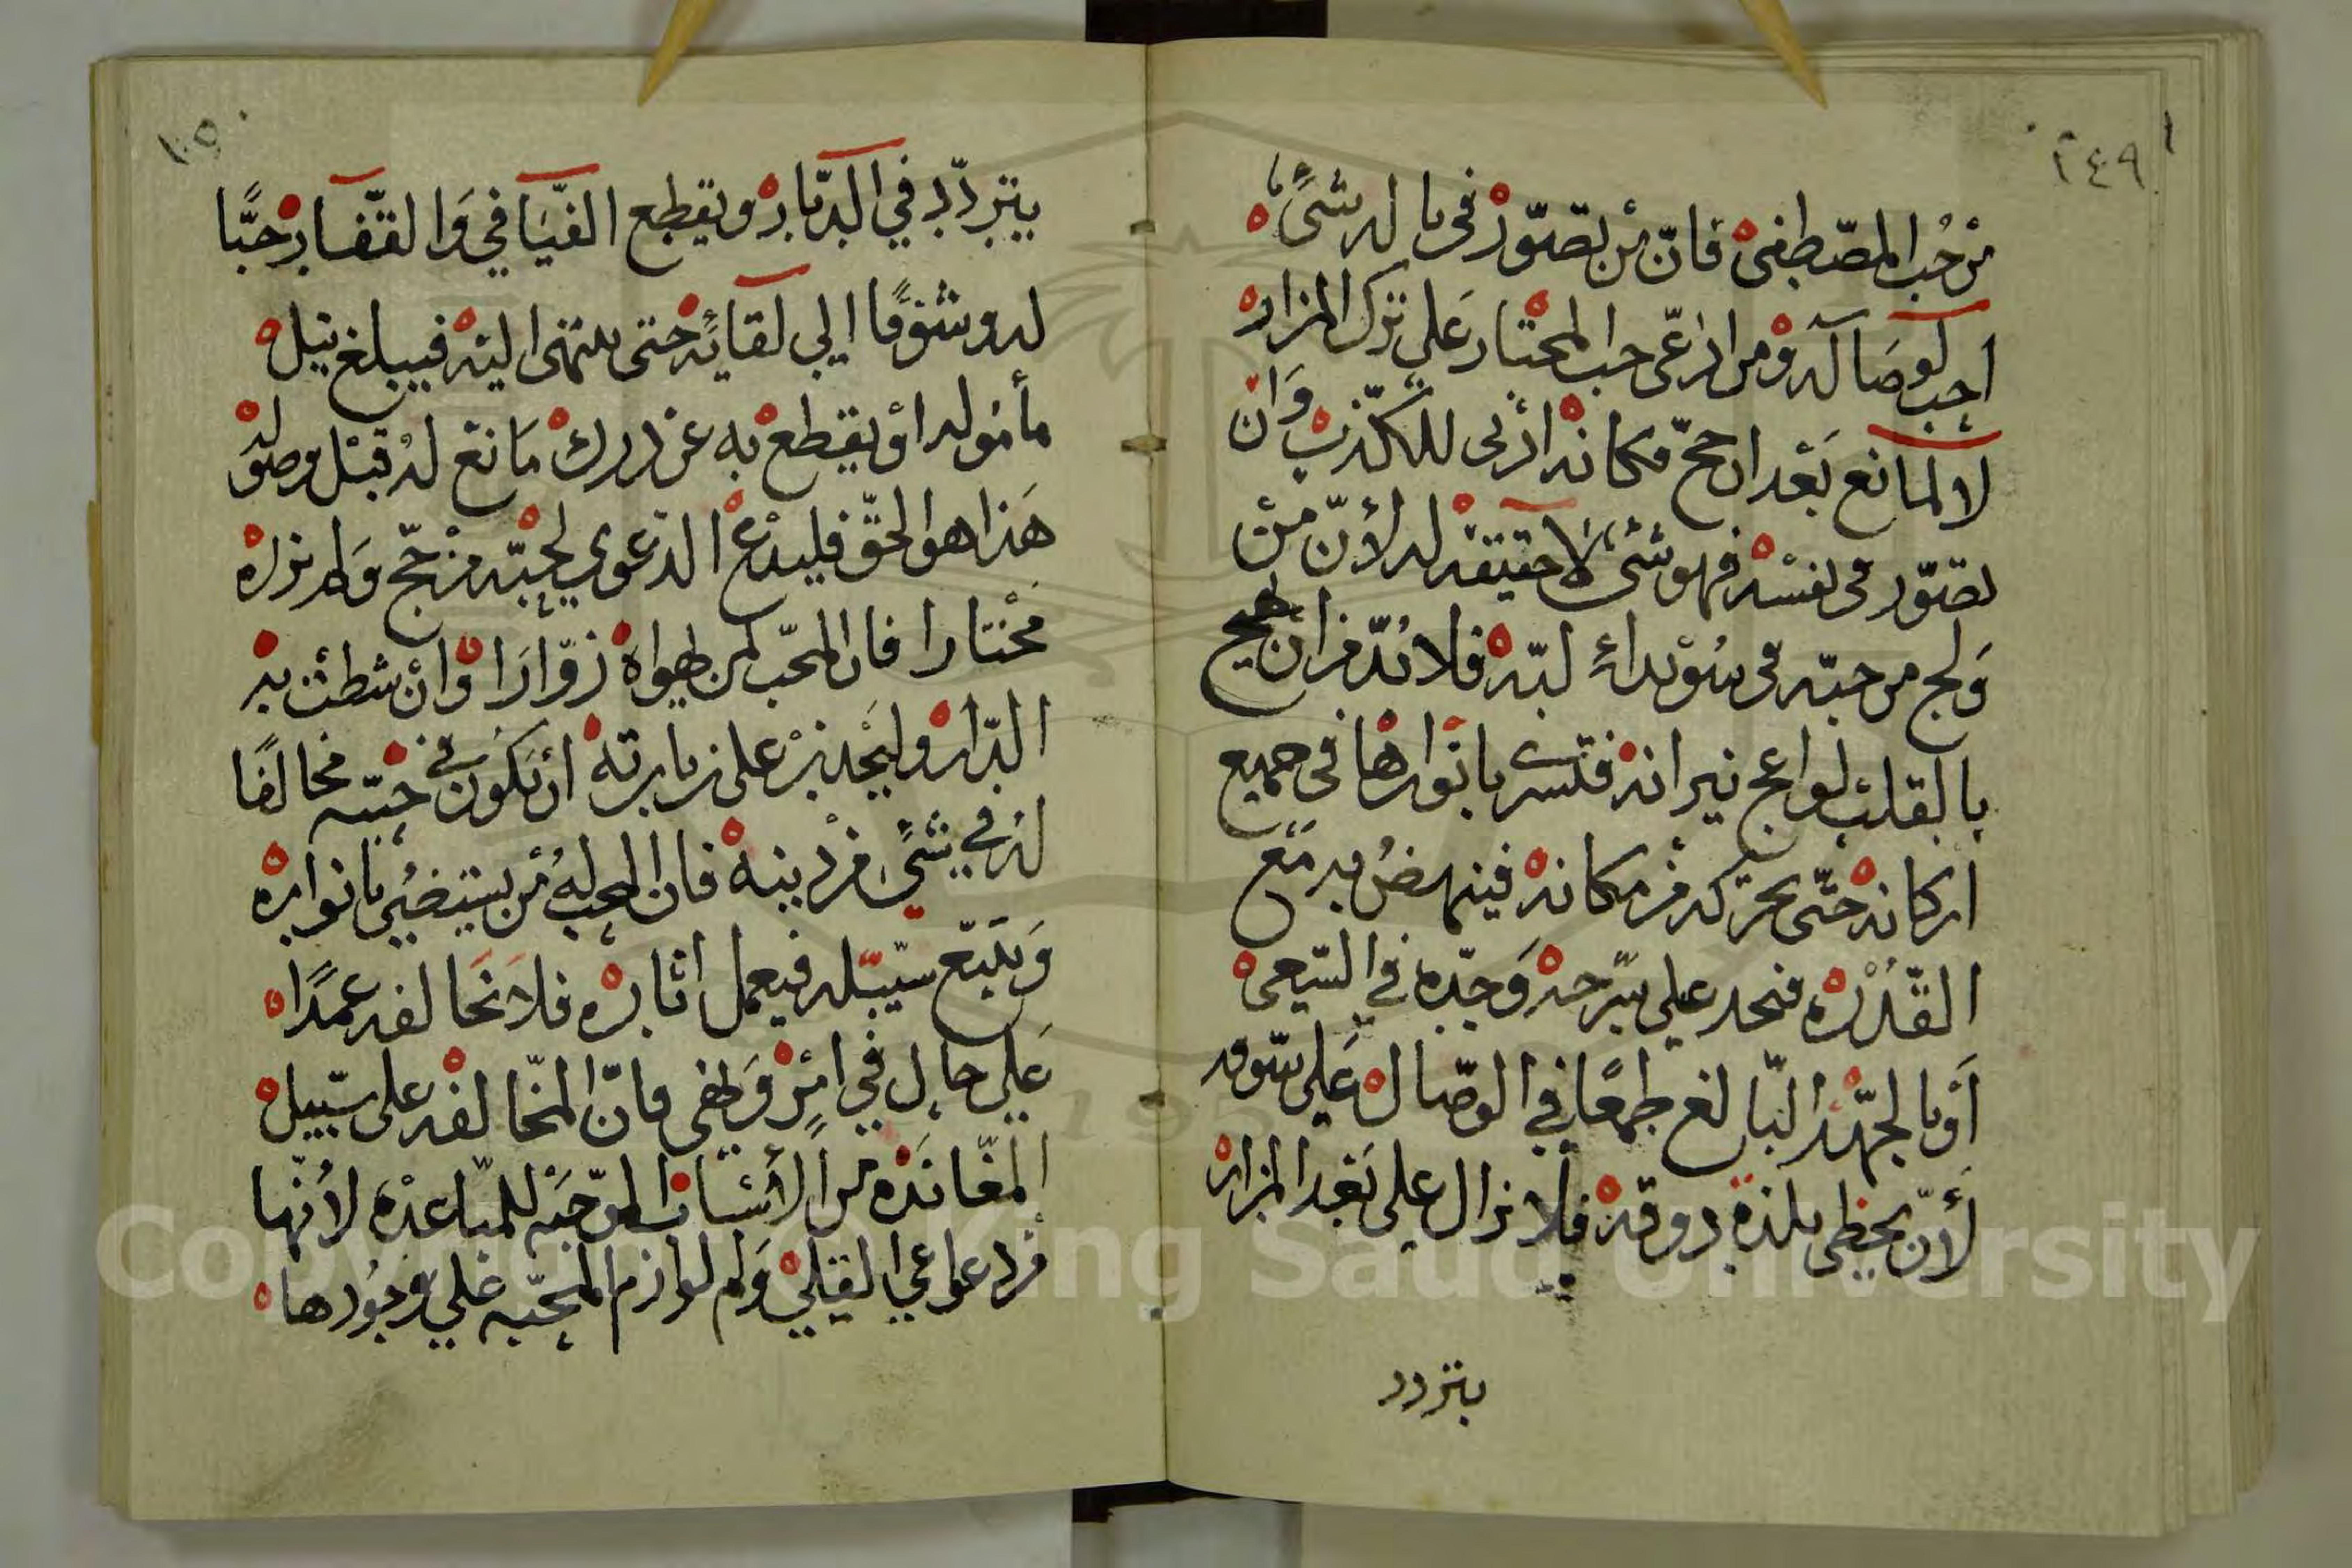 ٢٤٩
من حُب المصّطفىْ فَانّ مْن تصَوّرْ فى باله شىًٔ
احب لوصَاله وْمن ادعّى حب المختار عَلى ترك المزار
لا لمانع بَعْد ان حجّ فكانهْ ادنى للكّذبْ وَان
تصَوّر فى نفسْه فهو شىٔ لاحقيقة له لأنّ مْن
وَلج من حبّه فى سُوْيداءِ لبّهْ فلابُدّ من ان يهيج
بالقلبْ لواعج نيرانهْ فتسرى بانوارها فى جميع
اركانهْ حتّى يحرّكه مْن مكانهْ فينهضُ به مَع
القّدْرْه فتحد على سرحهْ وَجدّه في السّعىْ
أوبالجهْد البالغ طمعًا في الوصَال عَلى سوقه
لأنّ يحظى بلذة ذوقهْ فلا يزال على بَعْد المزار
يتردد
يتردّد في الديَارْ ويقطع الفيَافي وَالقفَارْ حبًّا
له وشوْقًا الي لقائهْ حتى ينتهى اليْه فيبلغ نيل
مأمُوله اوْ يقطع به عن دركْ مَانعْ لهُ قبْل وصوْله
هَذا هو الحقّ فليدْعْ الدعْوي لحبّه مْن حجّ وَلم يزره
مخْتارا فان المحبّ لمن يهواهْ زوّارَا وْانْ شطتْ به
الدّارْ وليَحْذرْ على زيارتهْ أن يكون في حبّه مخالفًا
لهُ في شىًٔ من دينهْ فان المحب لهُ مْن يستضيُ بانواره
وَيتّبع سبيله فيعمل اثارهْ فلاَ يخَالفه عمدًا
عَلي حال في امْرٍ وَنهى فانّ المخالفه على سبيل
المعَاندَه من الأسْبابْ الموْجبَه للمبَاعدْه لأنّها
من دعواعي القِلىْ وَلم لوازم المحبّه عَلي وجُودها